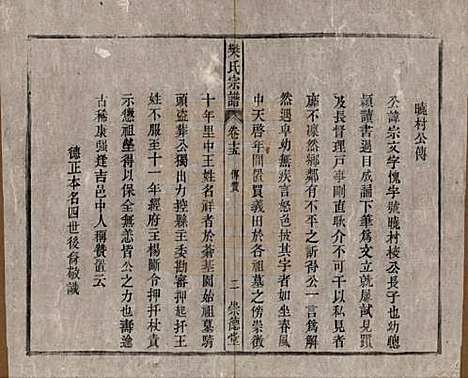 曉村公傳
公諱宗文字愧宇號曉村棱公長子也幼聰
穎讀書過目成誦下筆爲文立就屢試見錄
及長督理戸事剛直耿介不可干以私見者
靡不凜然鄉鄰有不平之訢得公一言爲解
然遇卑幼無疾言怒色披其字者如坐春風
中天啓年間置義田於各祖墓之傍崇徵
十年里中王姓名祥者於綦墓開始祖墓塋
頭盜葬公獨出力控縣王委勘審押起扦王
姓不服至十一年經府王楊斷令押扦杖責
示懲祖塋得以無恙皆公之力也壽逾
古稀康強逢吉邑中人稱費置云
德正本名四世後裔敬識
樊氏宗譜
卷十五
傳贊
二
崇德堂